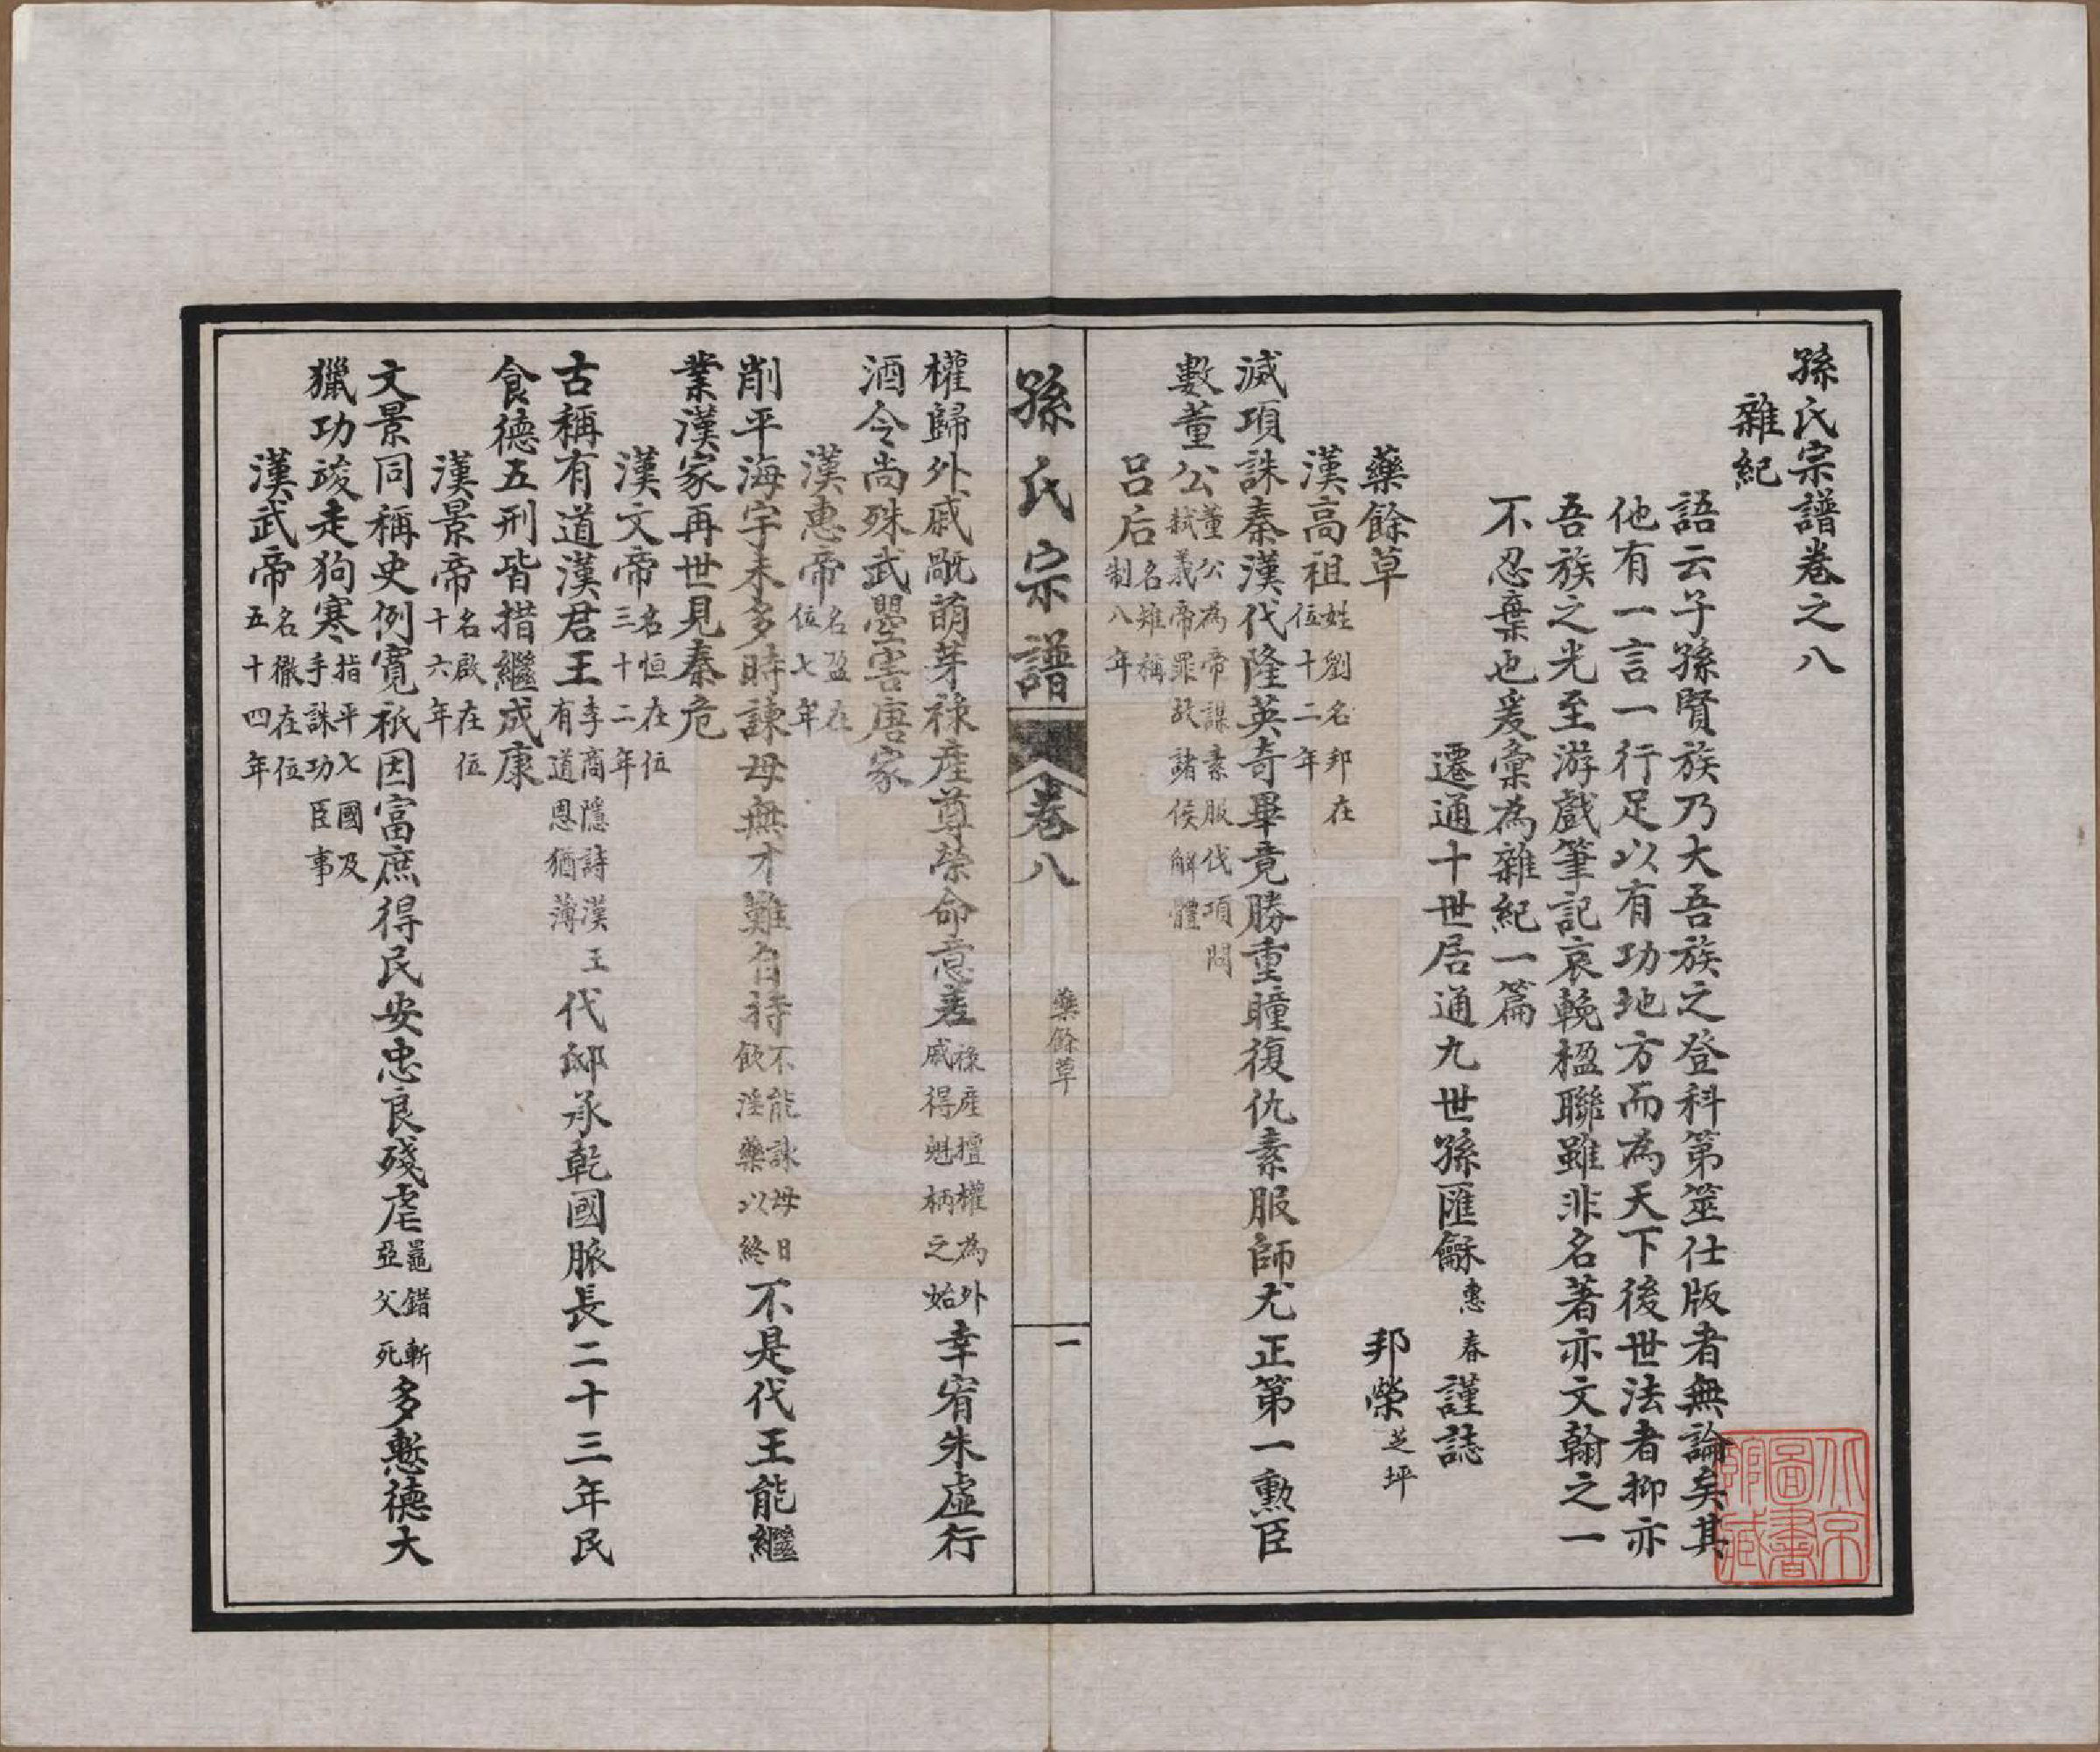 孫氏宗譜卷之八
雜紀
語云子孫賢族乃大吾族之登科第筮仕版者無論矣其
他有一言一行足以有功地方而為天下後世法者抑亦
吾族之光至游戲筆記哀輓楹聯雖非名著亦文翰之一
不忍棄也爰彙為雜紀一篇
遷通十世居通九世孫匯龢惠春謹誌
藥餘草 邦榮芝坪
漢高祖姓劉名邦在位十二年
滅項誅秦漢代隆英奇畢竟勝重瞳復仇素服師尤正第一勳臣
數董公董公為帝謀素服伐項問弒義帝罪故諸侯解體
呂后名雉稱制八年
孫氏宗譜 卷八 藥餘草 一
權歸外戚敝萌芽祿產尊榮命意差祿產擅權為外戚得魁柄之始幸宥朱虛行
酒令尚殊武曌害唐家
漢惠帝名盈在位七年
削平海宇未多時諫母無才難自持不能諫母日飲淫藥以終不是代王能繼
業漢家再世見秦危
漢文帝名恒在位三十二年
古稱有道漢君王李商隱詩漢王有道恩猶薄代邸承乾國脈長二十三年民
食德五刑皆措繼成康
漢景帝名啟在位十六年
文景同稱史例寬祇因富庶得民安忠良殘虐鼂錯斬亞父死多慙德大
獵功竣走狗寒指平七國及手誅功臣事
漢武帝名徹在位五十四年
北京圖書館藏